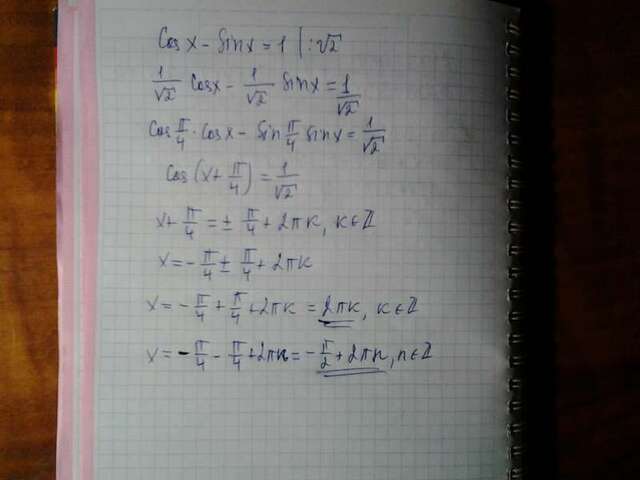 Cos x - Sin x = 1 | : √2
1/√2 Cos x - 1/√2 Sin x = 1/√2
Cos π/4 · Cos x - Sin π/4 sin x = 1/√2
Cos (x + π/4) = 1/√2
x + π/4 = ± π/4 + 2πк, к ∈ Z
x = - π/4 ± π/4 + 2πк
x = - π/4 + π/4 + 2πк = 2πк, к ∈ Z
x = - π/4 - π/4 + 2πк = - π/2 + 2πn, n ∈ Z